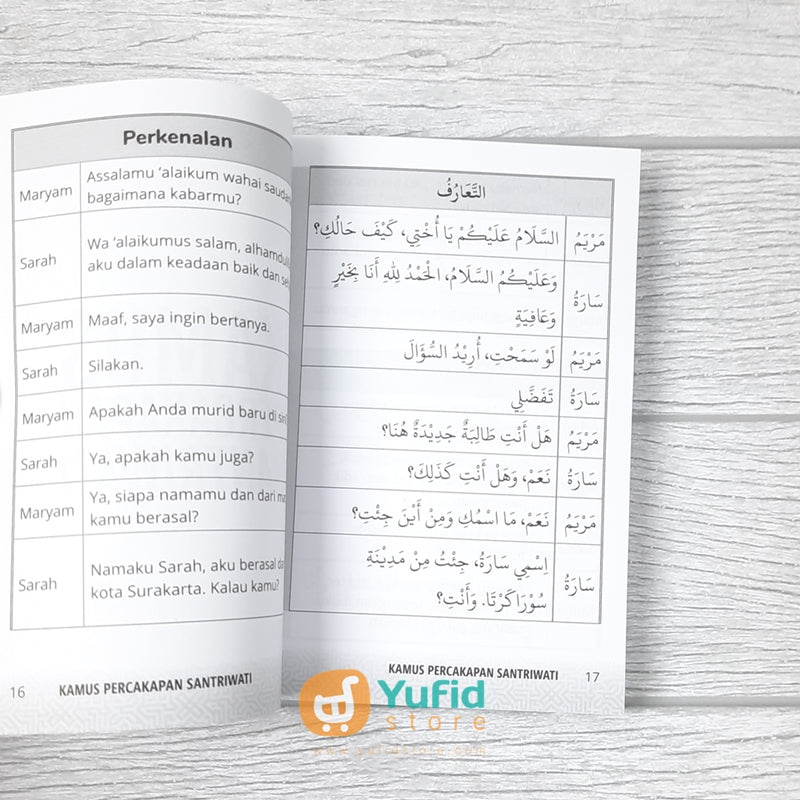 Perkenalan
Maryam
Assalamu 'alaikum wahai
bagaimana kabarmu?
Sarah
Wa 'alaikumus salam,
aku dalam keadaan baik dan
Maryam
Maaf, saya ingin bertanya.
Sarah
Silakan.
Maryam
Apakah Anda murid baru di
Sarah
Ya, apakah kamu juga?
Maryam
Ya, siapa namamu dan dari
kamu berasal?
Sarah
Namaku Sarah, aku berasal
kota Surakarta. Kalau kamu?
16 KAMUS PERCAKAPAN SANTRIWATI
التَّعَارُفُ
مَرْيَمُ
السَّلَامُ عَلَيْكُمْ يَا أُخْتِي، كَيْفَ حَالُكِ؟
سَارَةُ
وَعَلَيْكُمُ السَّلَامُ، الْحَمْدُ لِلهِ أَنَا بِخَيْرٍ
وَعَافِيَةٍ
مَرْيَمُ
لَوْ سَمَحْتِ، أُرِيْدُ السُّؤَالَ
سَارَةُ
تَفَضَّلِي
مَرْيَمُ
هَلْ أَنْتِ طَالِبَةٌ جَدِيْدَةٌ هُنَا؟
سَارَةُ
نَعَمْ، وَهَلْ أَنْتِ كَذَلِكَ؟
مَرْيَمُ
نَعَمْ، مَا اسْمُكِ وَمِنْ أَيْنَ جِئْتِ؟
سَارَةُ
اِسْمِي سَارَةُ، جِئْتُ مِنْ مَدِيْنَةِ
سُوْرَاكَرْتَا. وَأَنْتِ؟
KAMUS PERCAKAPAN SANTRIWATI 17
Yufid
store
www.yufidstore.com